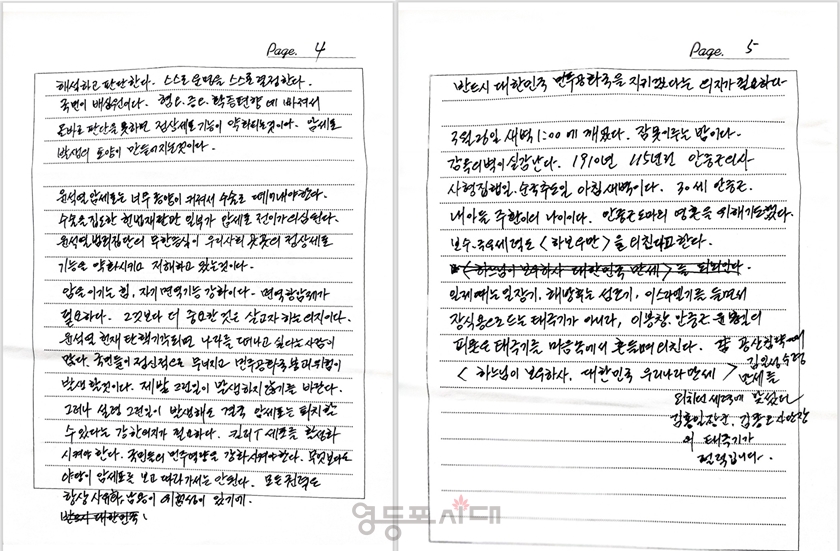 Page. 4
해석하고 판단한다. 스스로 운명을 스스로 결정한다.
국민이 배심원이다. 혈연.지연.학등편향에 빠져서
올바로 판단을 못하면 정상세포 기능이 약화되는것이다. 암세포
발생의 토양이 만들어지는것이다.
윤석열 암세포는 너무 종양이 커져서 수술로 떼어내야한다.
수술을 집도한 헌법재판관 일부가 암세포 전이가 의심된다.
윤석열 법리집단의 무한증식이 우리사회 곳곳의 정상세포
기능을 약화시키고 저해하고 있는것이다.
암을 이기는 힘, 자기 면역기능 강화이다. 면역 항암제가
필요하다. 그것보다 더 중요한 것은 살고자 하는 의지이다.
윤석열 헌재 탄핵기각되면 나라를 떠나고 싶다는 사람이
많다. 국민들이 정신적으로 무너지고 민주공화국 붕괴 위험이
발생할것이다. 제발 그런일이 발생하지 않기를 바란다.
그러나 설령 그런일이 발생해도 결국 암세포는 퇴치할
수 있다는 강한의지가 필요하다. 킬러T 세포를 활성화
시켜야 한다. 국민들의 민주역량을 강화시켜야한다. 무엇보다도
야당이 암세포를 보고 따라가서는 안된다. 모든 권력도
항상 사유화, 남용의 위험성이 있기에.
반드시 대한민국
Page. 5
반드시 대한민국 민주공화국을 지키겠다는 의지가 필요하다
3월 26일 새벽 1:00에 깨었다. 잠못이루는 밤이다.
감옥의 벽이 실감난다. 1910년 115년전 안중근의사
사형집행일. 순국추도일 아침 새벽이다. 30세 안중근.
내아들 주환이의 나이이다. 안중근 도마의 영혼을 위해 기도했다.
보수.극우세력도 <하보우만>을 외친다고 한다.
<하느님이 보우하사 대한민국 만세>를 외치었다.
일제때는 일장기, 해방후는 성조기, 이스라엘기를 들면서
장식용으로 드는 태극기가 아니다, 이봉창. 안중근 윤봉길의
피묻은 태극기를 마음속에서 흔들며 외친다.
<하느님이 보우하사, 대한민국 우리나라 만세>
공산침략에
김일성수령
만세를
외치며 세력에 맞섰다
김홍일장군, 김종오사단장
의 태극기가
펄럭입니다.
영등포시대